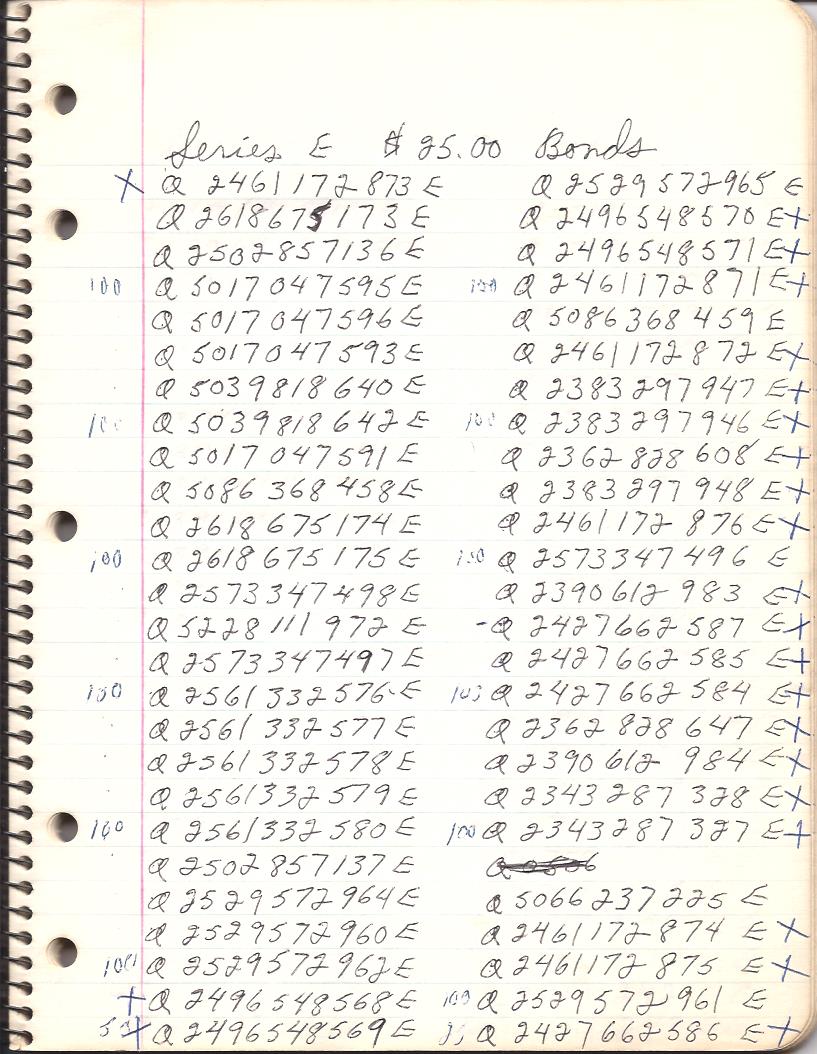 Series E $ 25.00 Bonds
X Q 2461172873 E Q 2529572965 E
Q 2618675173 E Q 2496548570 E+
Q 2502857136 E Q 2496548571 E+
100 Q 5017047595 E 100 Q 2461172871 E+
Q 5017047596 E Q 5086368459 E
Q 5017047593 E Q 2461172872 E+
Q 5039818640 E Q 2383297947 E+
100 Q 5039818642 E 100 Q 2383297946 E+
Q 5017047591 E Q 2362828608 E+
Q 5086368458 E Q 2383297948 E+
Q 2618675174 E Q 2461172876 E+
100 Q 2618675175 E 100 Q 2573347496 E
Q 2573347498 E Q 2390612983 E+
Q 5228111972 E -Q 2427662587 E+
Q 2573347497 E Q 2427662585 E+
100 Q 2561332576 E 100 Q 2427662584 E+
Q 2561332577 E Q 2362828647 E+
Q 2561332578 E Q 2390612984 E+
Q 2561332579 E Q 2343287328 E+
100 Q 2561332580 E 100 Q 2343287327 E+
Q 2502857137 E
Q 2529572964 E Q 5066237225 E
Q 2529572960 E Q 2461172874 E X
100 Q 2529572962 E Q 2461172875 E +
+ Q 2496548568 E 100 Q 2529572961 E
50+ Q 2496548569 E Q 2427662586 E+